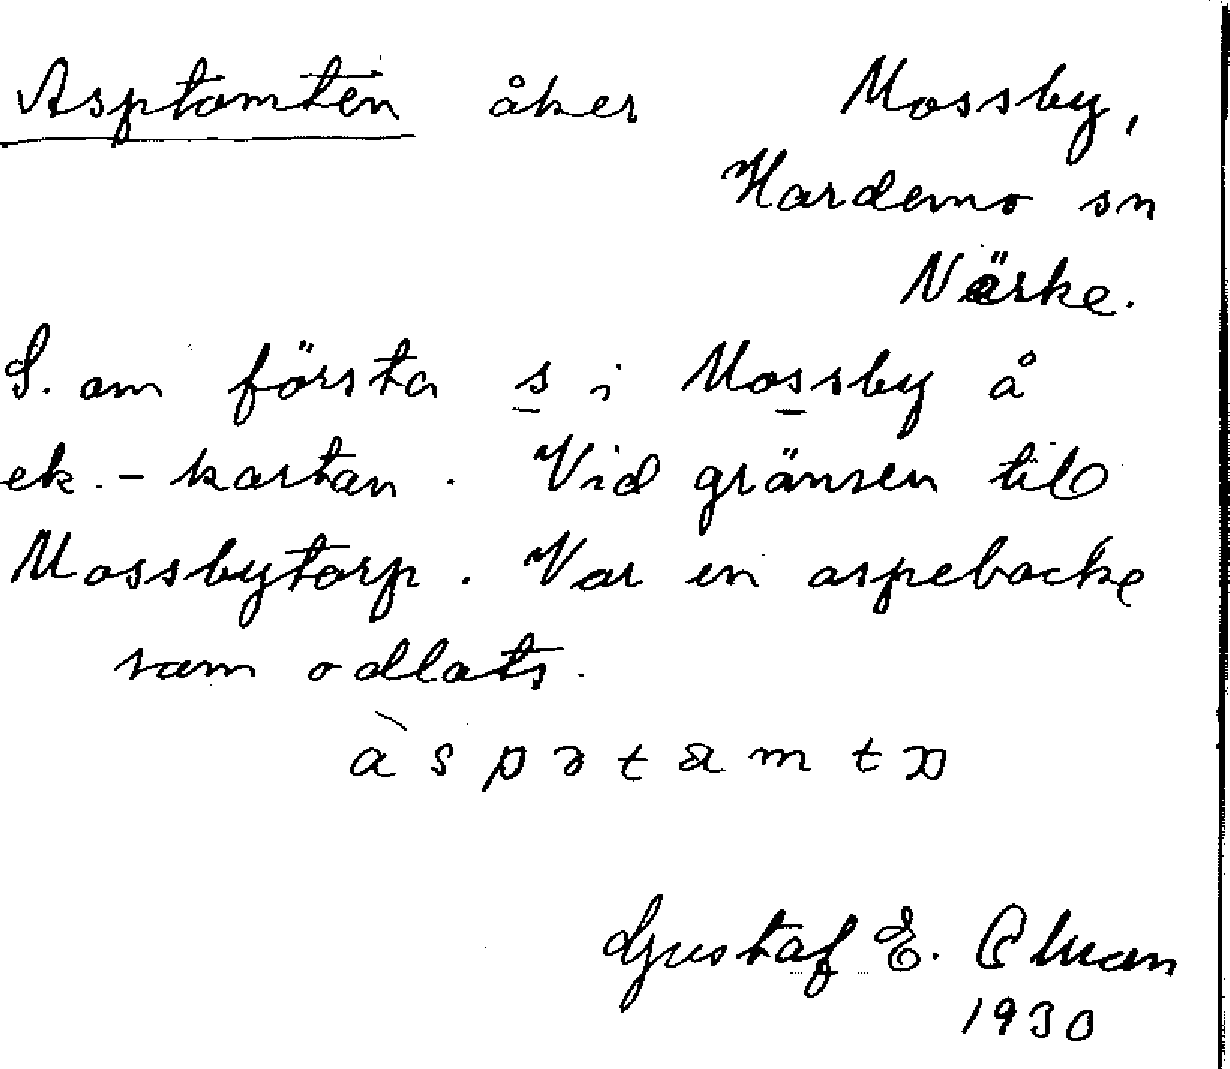 Asptomten åker Mossby,
Hardemo sn
Närke.
S. om första s i Mossby å
ek.-kartan. Vid gränsen till
Mossbytorp. Var en aspebacke
som odlats.
Gustaf E.
1930